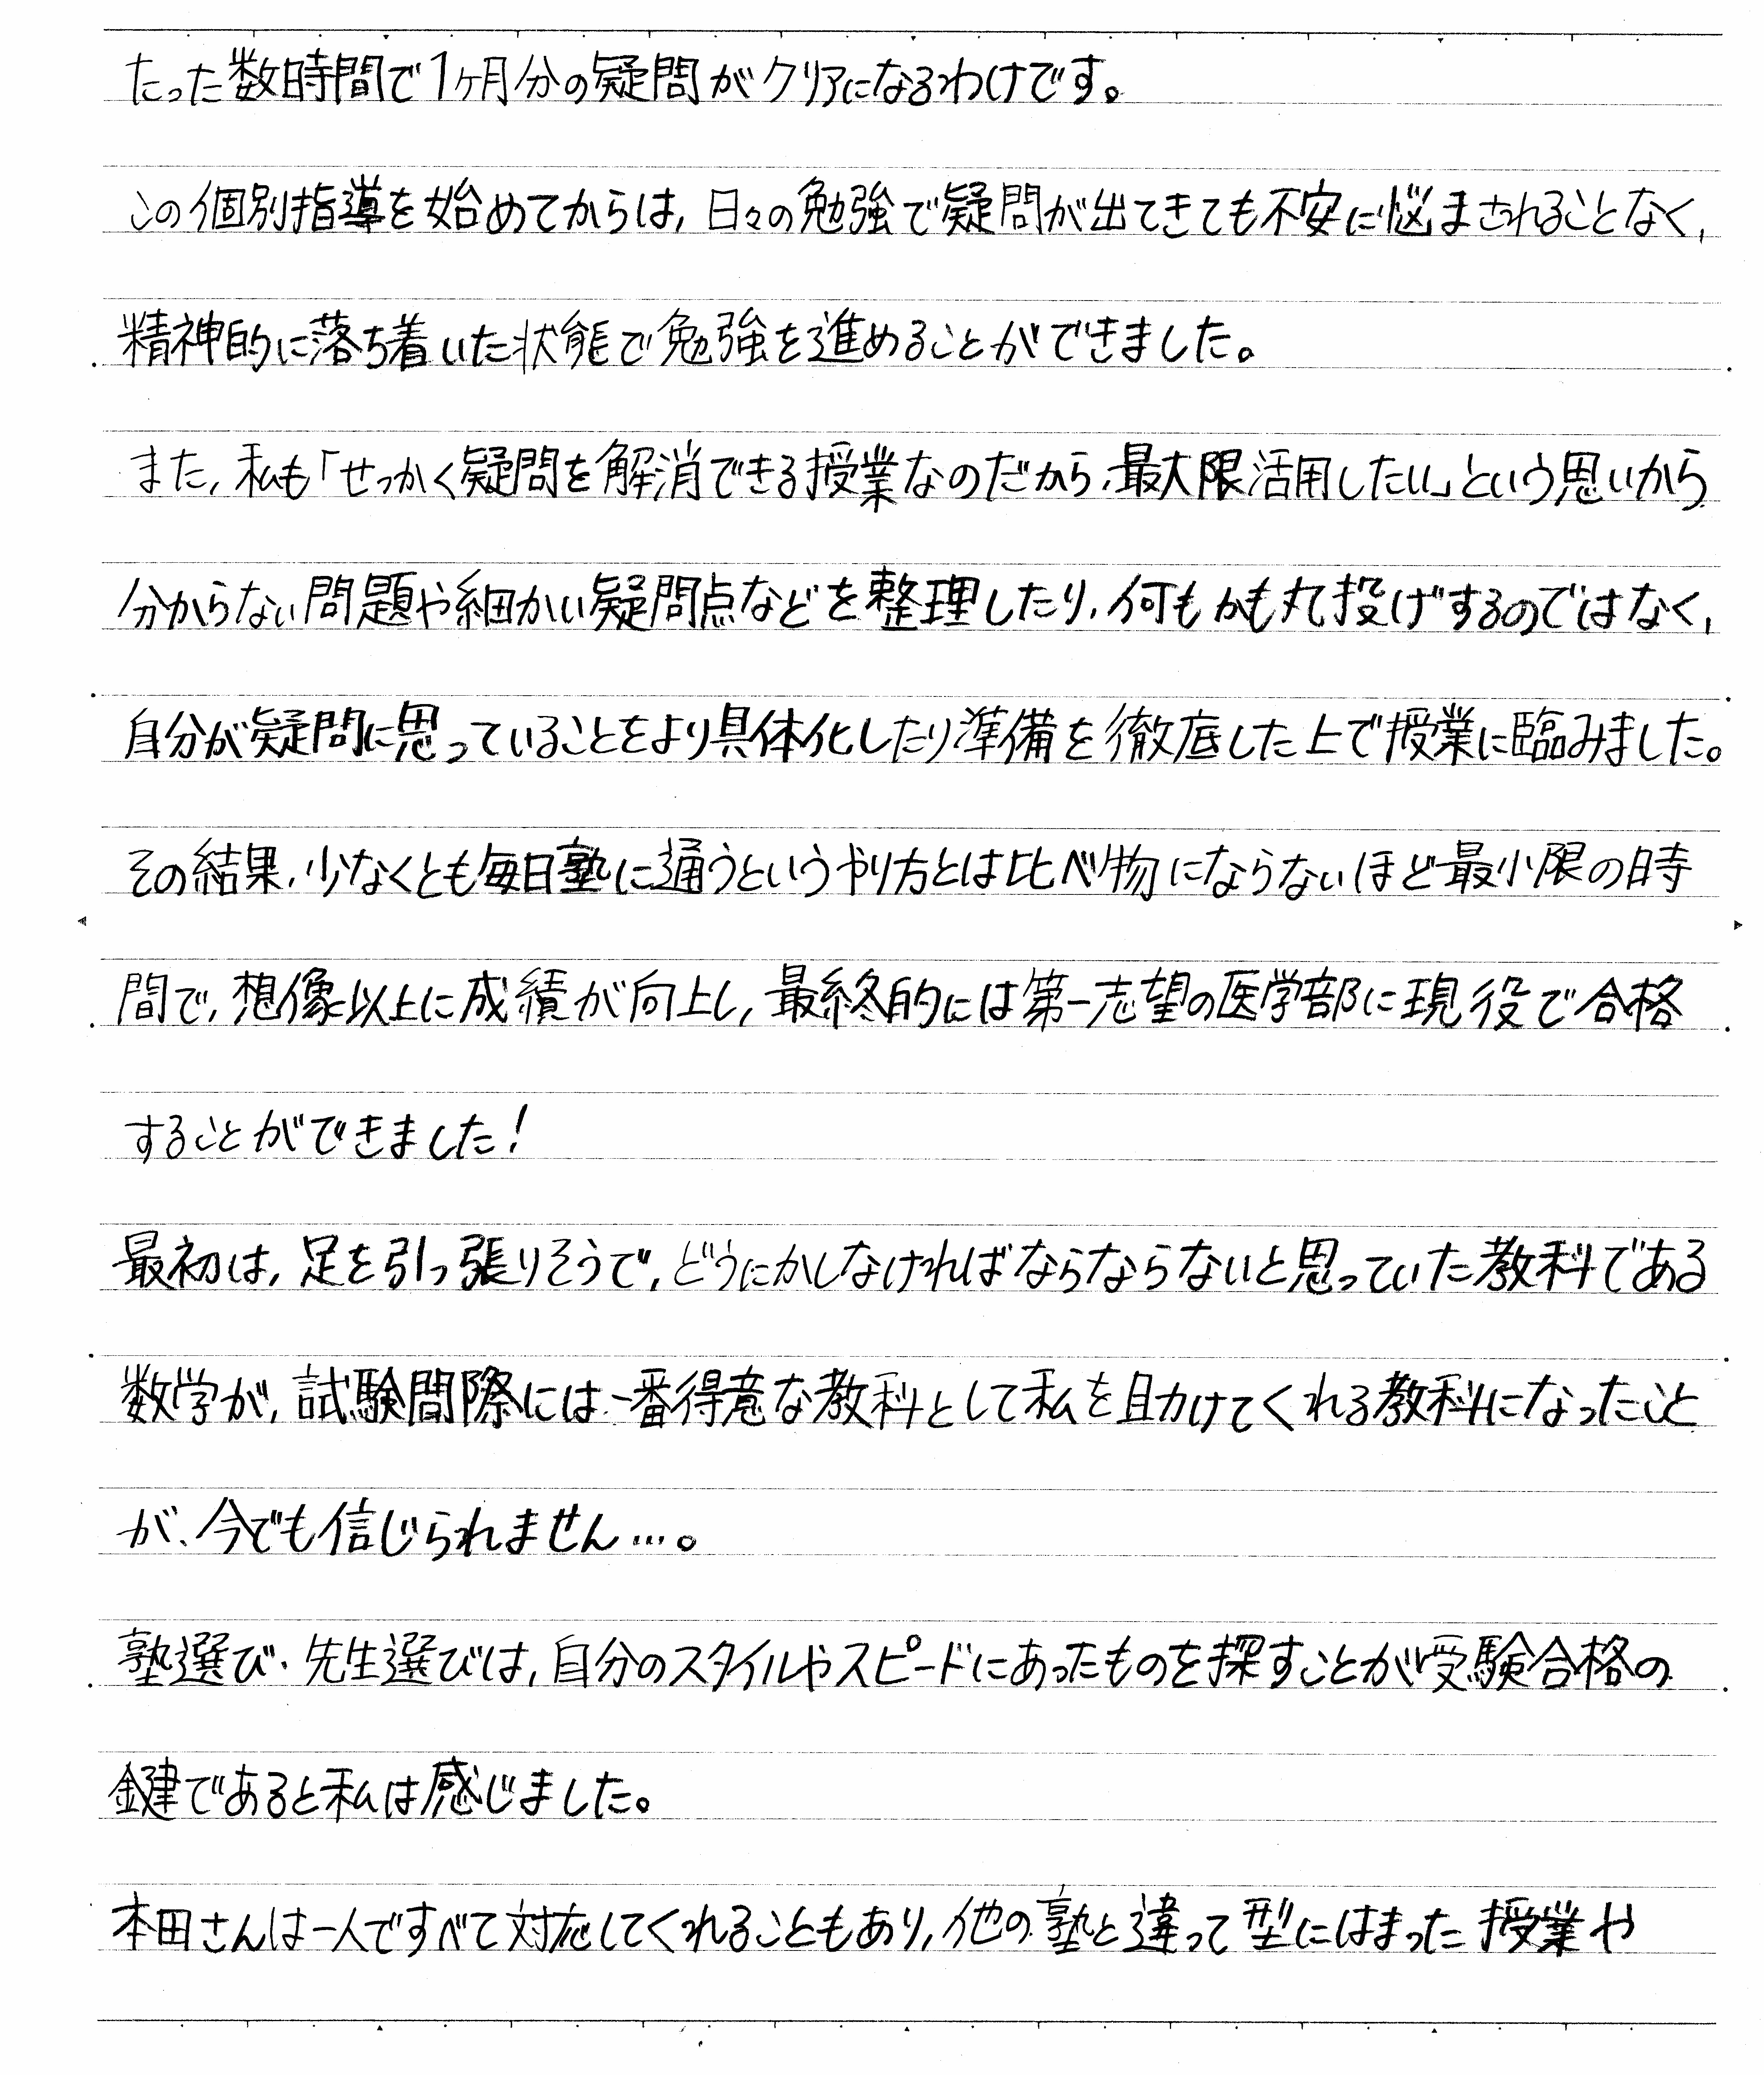 たった数時間で1ヶ月分の疑問がクリアになるわけです。
この個別指導を始めてからは, 日々の勉強で疑問が出てきても不安に悩まされることなく,
精神的に落ち着いた状態で勉強を進めることができました。
また, 私も「せっかく疑問を解消できる授業なのだから, 最大限活用したい」という思いから
分からない問題や細かい疑問点などを整理したり, 何もかも丸投げするのではなく,
自分が疑問に思っていることをより具体化したり準備を徹底した上で授業に臨みました。
その結果, 少なくとも毎日塾に通うというやり方とは比べ物にならないほど最小限の時
間で, 想像以上に成績が向上し, 最終的には第一志望の医学部に現役で合格
することができました!
最初は, 足を引っ張りそうで, どうにかしなければならならないと思っていた教科である
数学が, 試験間際には一番得意な教科として私を助けてくれる教科になったこと
が、今でも信じられません…。
塾選び・先生選びは, 自分のスタイルやスピードにあったものを探すことが受験合格の
鍵であると私は感じました。
本田さんは一人ですべて対応してくれることもあり, 他の塾と違って型にはまった授業や